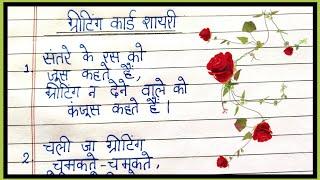 ग्रीटिंग कार्ड शायरी
1. संतरे के रस को
जूस कहते हैं,
ग्रीटिंग न देने वाले को
कंजूस कहते हैं।
2. चली जा ग्रीटिंग
चमकते-चमकते,